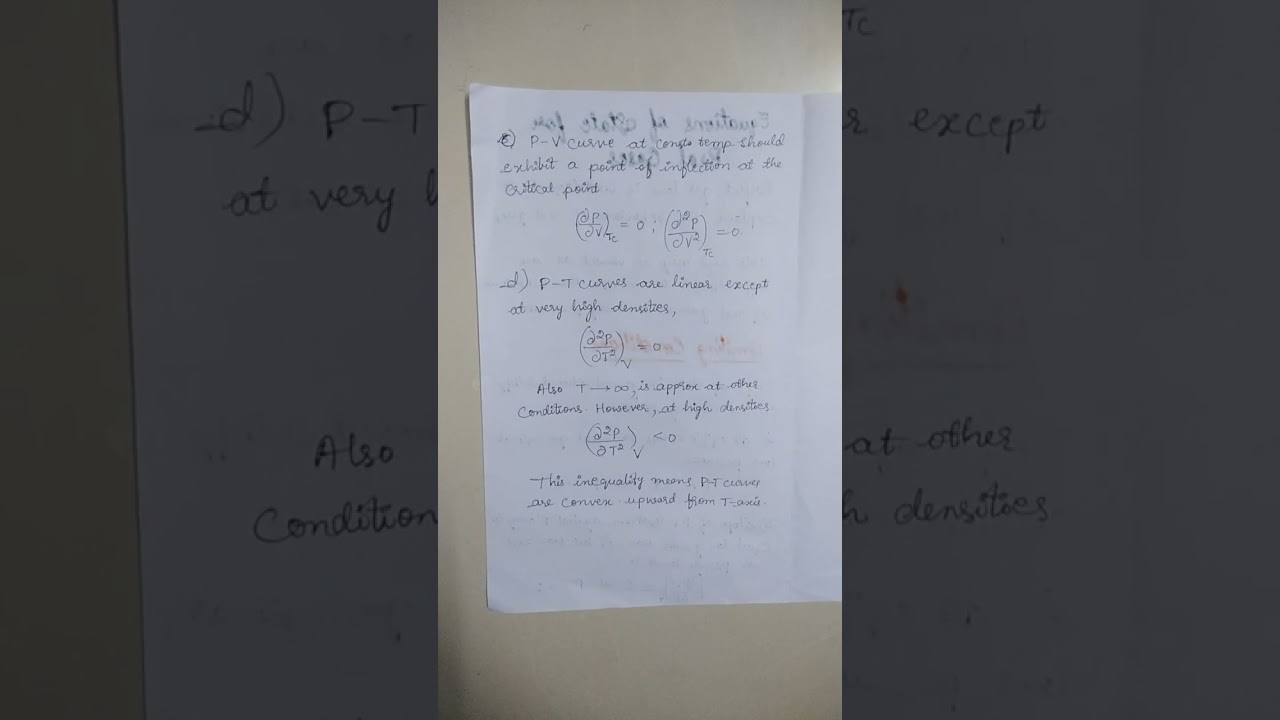 c) P-V curve at const temp should
exhibit a point of inflection at the
critical point
(∂P/∂V)_Tc = 0 ; (∂²P/∂V²)_Tc = 0
d) P-T curves are linear except
at very high densities,
(∂²P/∂T²)_V = 0
Also T → ∞, is approx at other
Conditions. However, at high densities
(∂²P/∂T²)_V < 0
This inequality means P-T curves
are convex upward from T-axis.